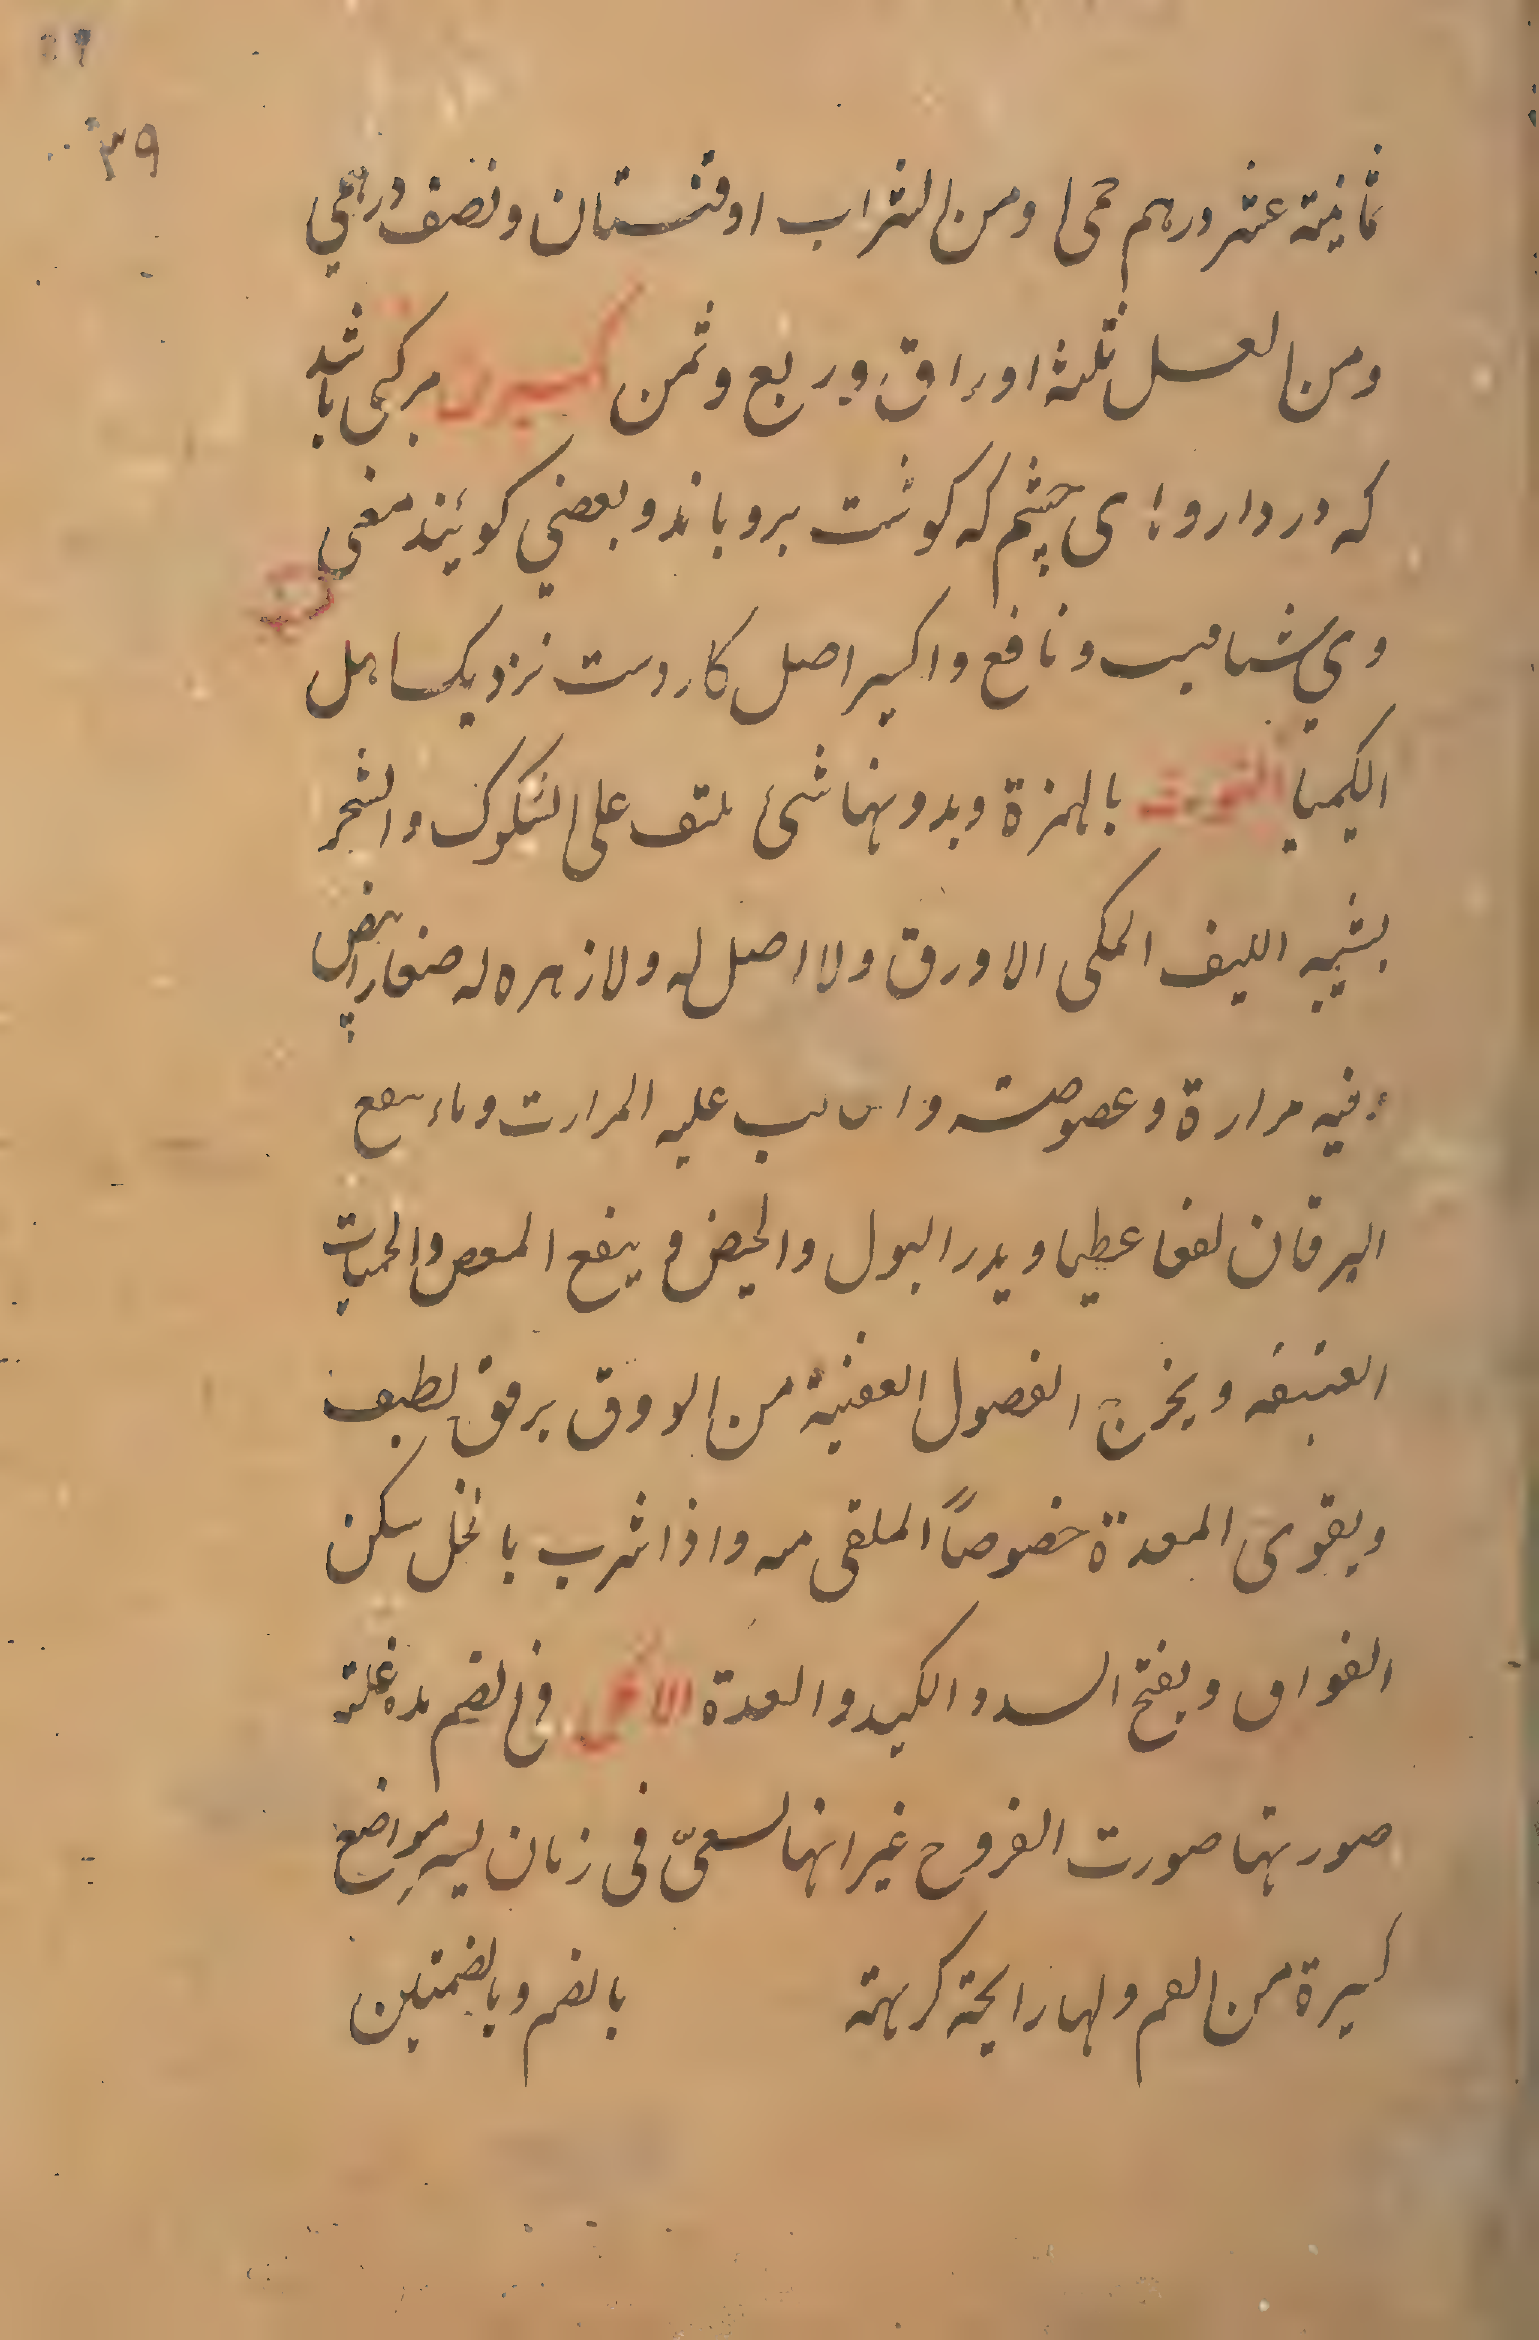 ٣٩
ثمانية عشر درهم حمى ومن الشراب اوقستان ونصف درهمي
ومن العسل ثلثة اوراق وربع وثمن كسيرن مركبى باشد
كه در داروهاى چشم كه كوشت بروياند و بعضي كويند معنى
وي شافيست و نافع و اكسير اصل كاروست نزديك اهل
الكيميا بالهمزة وبدونها شئ ملتف على الشكوك والشجر
يشبه الليف المكى الا ورق ولا اصل له ولا زهره له صغار ابيض
فيه مرارة وعصوصة عليه المرارت وماء ينفع
اليرقان نفعا عظيما و يدر البول والحيض و ينفع المعص والحميات
العتيقه ويخرج الفصول العفنية من الروق برفق لطيف
ويقوى المعدة خصوصاً الملقى منه واذا شرب بالخل سكن
الفواق ويفتح السدد الكبد والمعدة الا في الضم بده غلته
صورتها صورت القروح غير انها لسعىّ فى زمان يسير مواضع
كبيرة من العم ولها رايحة كريهة بالضم وبالضمتين